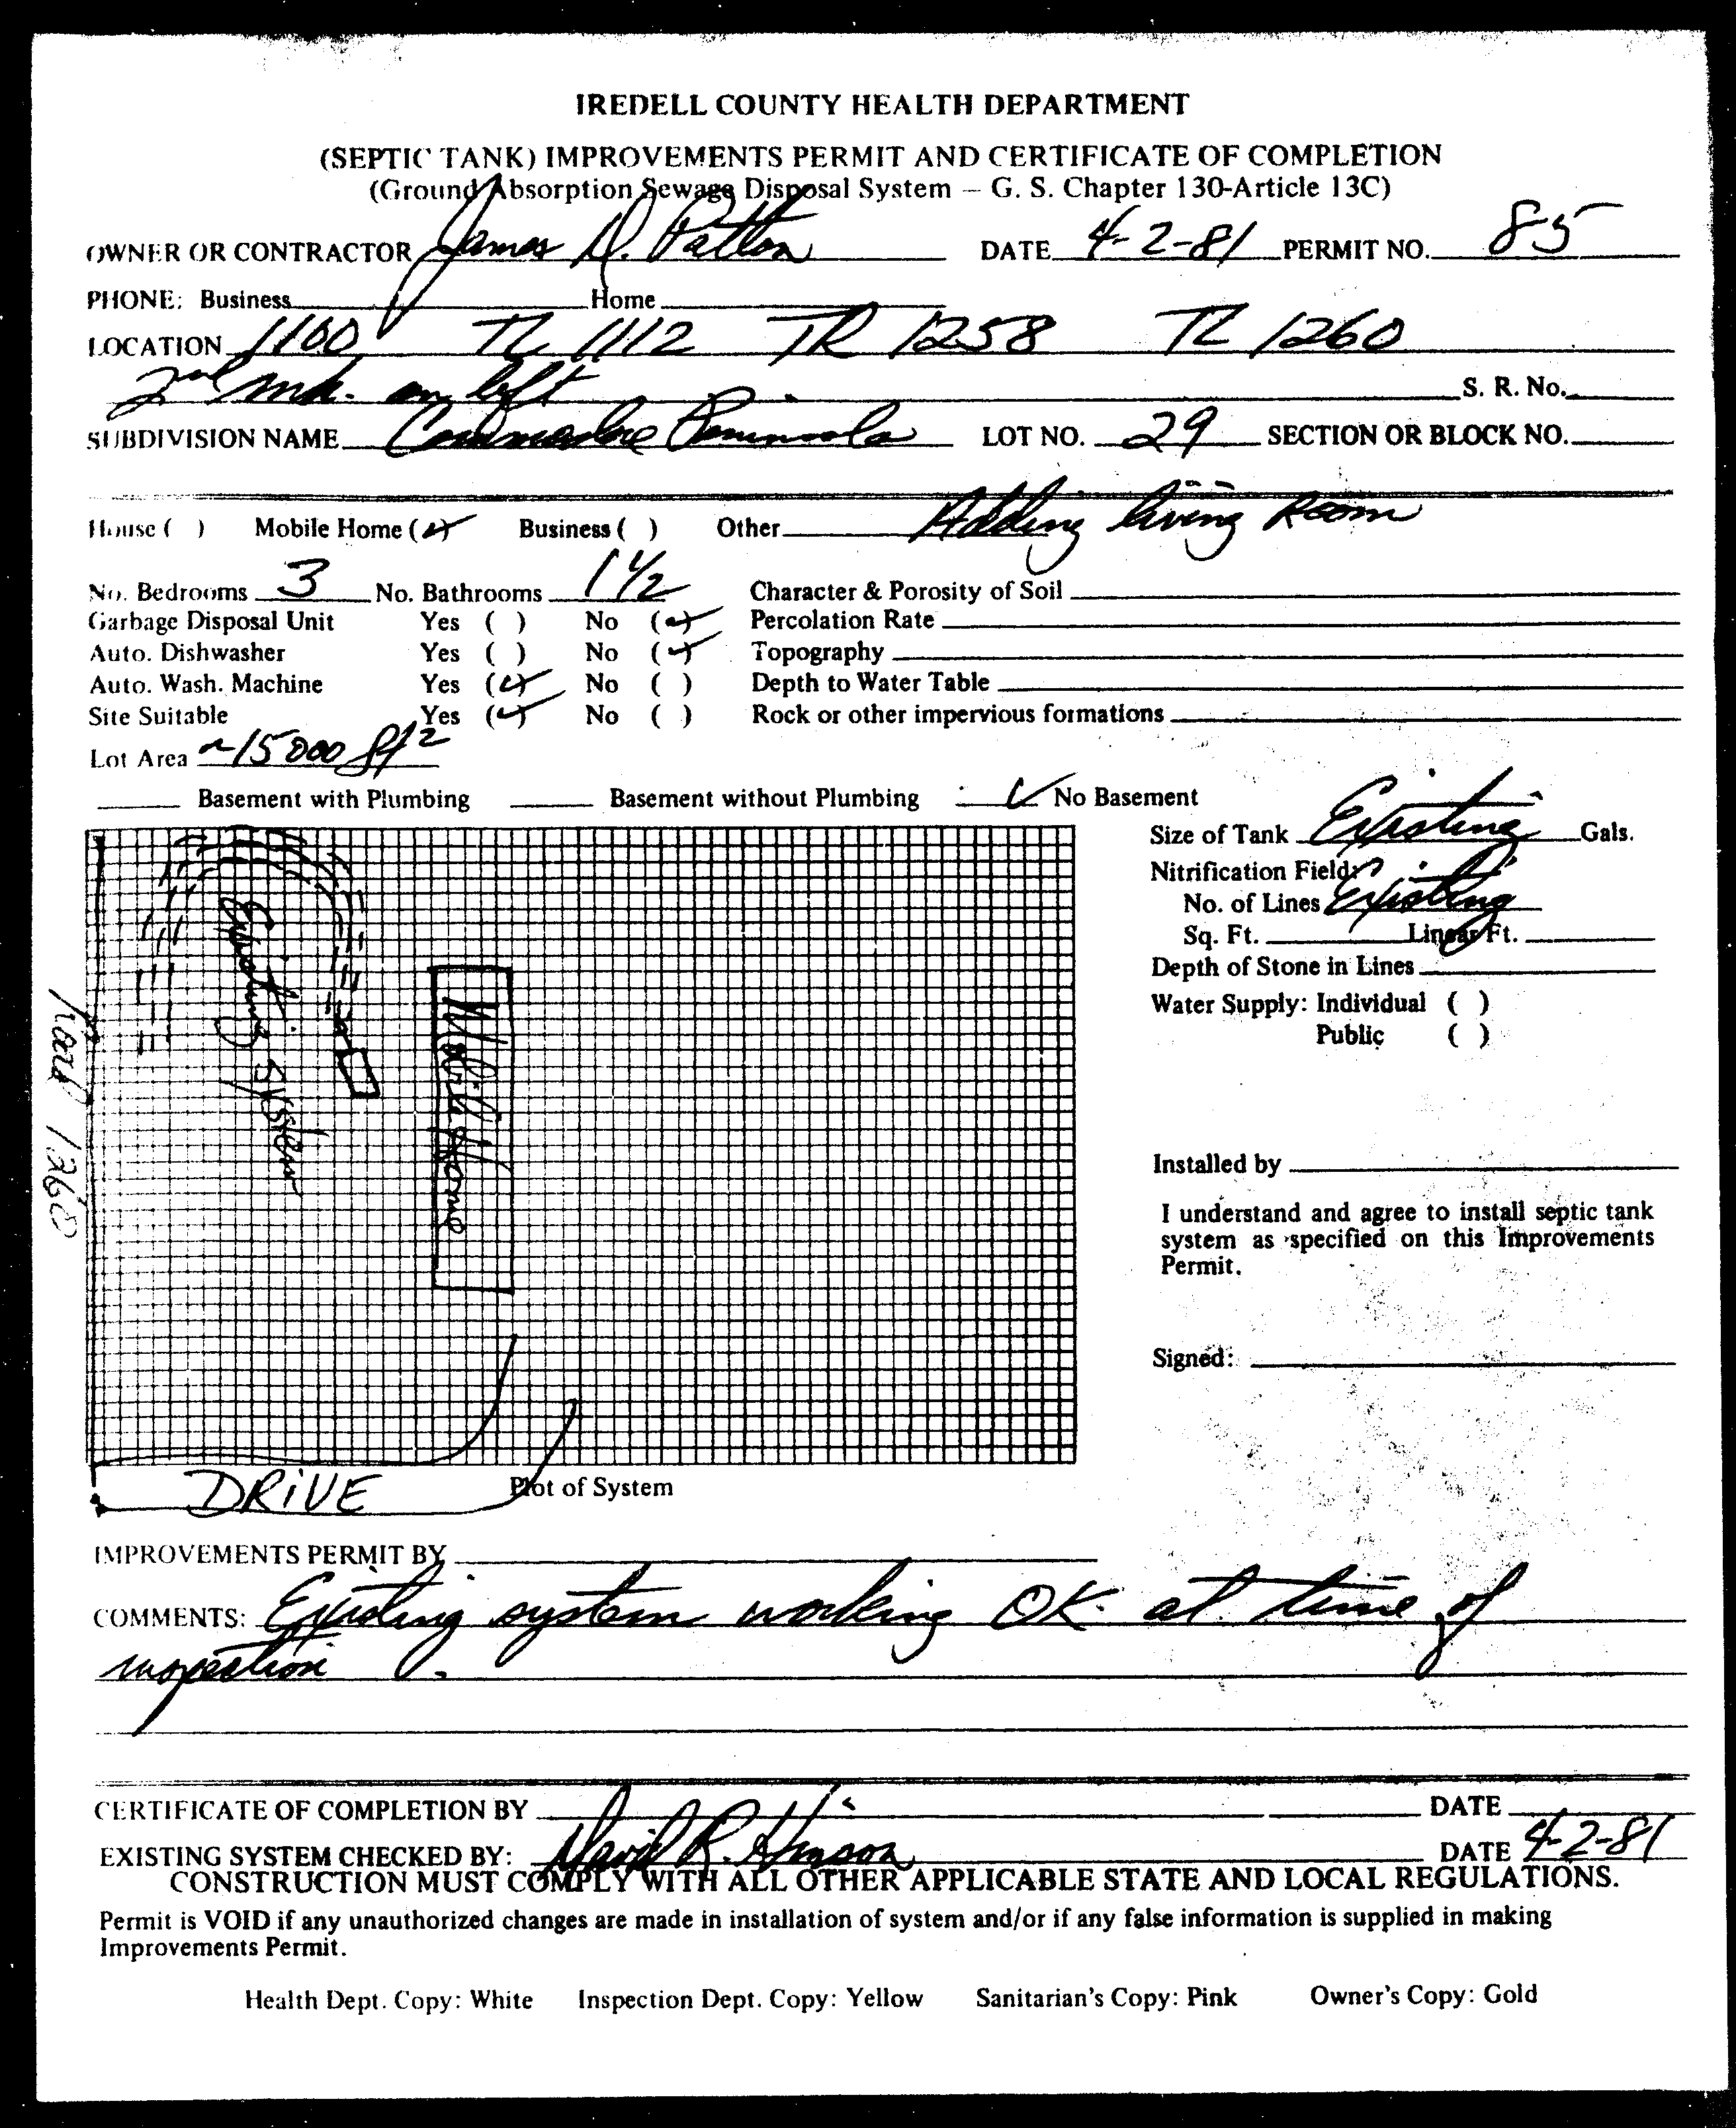 IREDELL COUNTY HEALTH DEPARTMENT
(SEPTIC TANK) IMPROVEMENTS PERMIT AND CERTIFICATE OF COMPLETION
(Ground Absorption Sewage Disposal System – G. S. Chapter 130-Article 13C)
OWNER OR CONTRACTOR James D. Patton DATE 4-2-81 PERMIT NO. 85
PHONE: Business Home
LOCATION 1100 TL 1112 TR 1258 TL 1260
2nd m.h. on left S. R. No.
SUBDIVISION NAME Commodore Peninsula LOT NO. 29 SECTION OR BLOCK NO.
House ( ) Mobile Home (✓) Business ( ) Other Adding living Room
No. Bedrooms 3 No. Bathrooms 1 1/2 Character & Porosity of Soil
Garbage Disposal Unit Yes ( ) No (✓) Percolation Rate
Auto. Dishwasher Yes ( ) No (✓) Topography
Auto. Wash. Machine Yes (✓) No ( ) Depth to Water Table
Site Suitable Yes (✓) No ( ) Rock or other impervious formations
Lot Area ~15000 ft2
Basement with Plumbing Basement without Plumbing ✓ No Basement
Size of Tank Existing Gals.
Nitrification Field:
No. of Lines Existing
Sq. Ft. Linear Ft.
Depth of Stone in Lines
Water Supply: Individual ( )
Public ( )
Existing System
Mobile Home
Road 1260
Installed by
I understand and agree to install septic tank
system as specified on this Improvements
Permit.
Signed:
DRIVE
Plot of System
IMPROVEMENTS PERMIT BY
COMMENTS: Existing system working OK at time of
inspection.
CERTIFICATE OF COMPLETION BY DATE
EXISTING SYSTEM CHECKED BY: David R. Hinson DATE 4-2-81
CONSTRUCTION MUST COMPLY WITH ALL OTHER APPLICABLE STATE AND LOCAL REGULATIONS.
Permit is VOID if any unauthorized changes are made in installation of system and/or if any false information is supplied in making
Improvements Permit.
Health Dept. Copy: White Inspection Dept. Copy: Yellow Sanitarian's Copy: Pink Owner's Copy: Gold